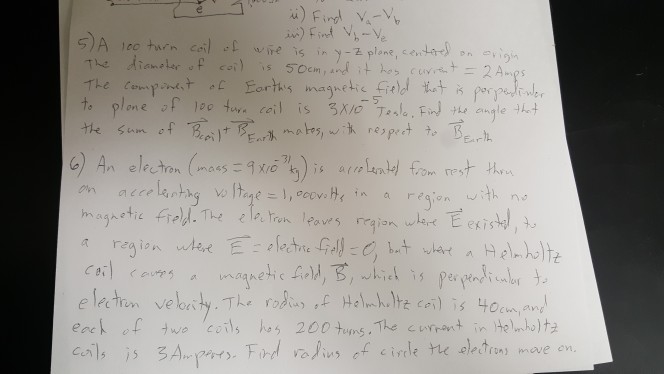 e
ii) Find Va-Vb
iii) Find Vb-Ve
5) A 100 turn coil of wire is in y-z plane, centered on origin
The diameter of coil is 50cm, and it has current = 2 Amps
The component of Earth's magnetic field that is perpendicular
to plane of 100 turn coil is 3x10⁻⁵ Tesla. Find the angle that
the sum of B⃗coil + B⃗Earth makes, with respect to B⃗Earth
6) An electron (mass = 9x10⁻³¹kg) is accelerated from rest thru
an accelerating voltage = 1,000 volts in a region with no
magnetic field. The electron leaves region where E⃗ existed, to
a region where E⃗ = electric field = 0, but where a Helmholtz
coil causes a magnetic field, B⃗, which is perpendicular to
electron velocity. The radius of Helmholtz coil is 40cm, and
each of two coils has 200 turns. The current in Helmholtz
coils is 3 Amperes. Find radius of circle the electrons move on.